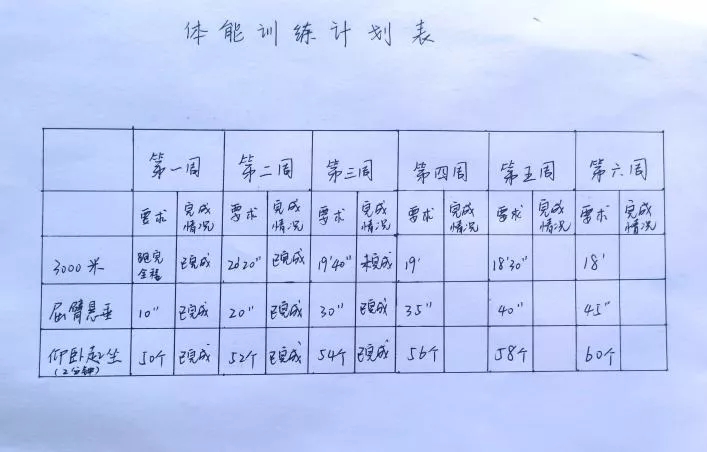 体能训练计划表
第一周 第二周 第三周 第四周 第五周 第六周
要求 完成情况 要求 完成情况 要求 完成情况 要求 完成情况 要求 完成情况 要求 完成情况
3000米 跑完全程 已完成 20'20" 已完成 19'40" 未完成 19' 18'30" 18'
屈臂悬垂 10" 已完成 20" 已完成 30" 已完成 35" 40" 45"
仰卧起坐 50个 已完成 52个 已完成 54个 已完成 56个 58个 60个
(2分钟)